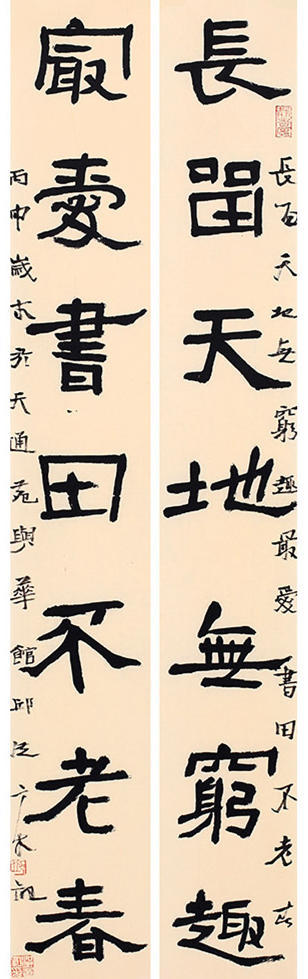 長留天地無窮趣
長留天地無窮趣最愛書田不老春
最愛書田不老春
丙申歲末於天通苑與華館邱